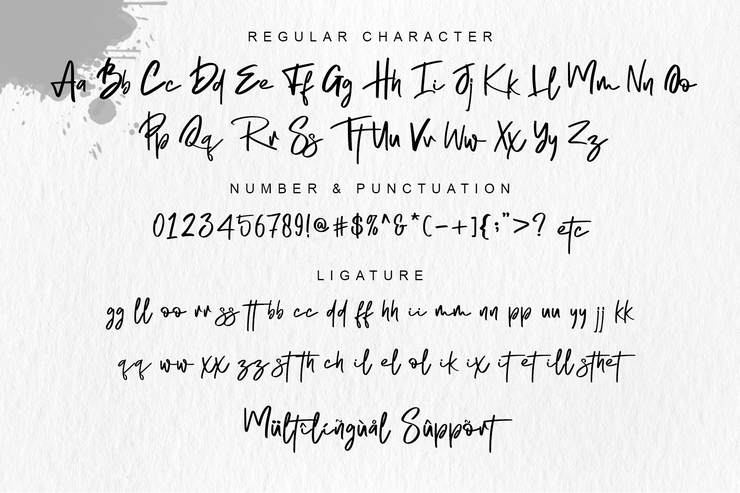 REGULAR CHARACTER
Aa Bb Cc Dd Ee Ff Gg Hh Ii Jj Kk Ll Mm Nn Oo
Pp Qq Rr Ss Tt Uu Vv Ww Xx Yy Zz
NUMBER & PUNCTUATION
0123456789!@#$%^&*(-+]{;">? etc
LIGATURE
gg ll oo rr ss tt bb cc dd ff hh ii mm nn pp uu yy jj kk
qq ww xx zz st th ch il el ol ik ix it et ill sthet
Mültîlíñgùål Sûppõrt